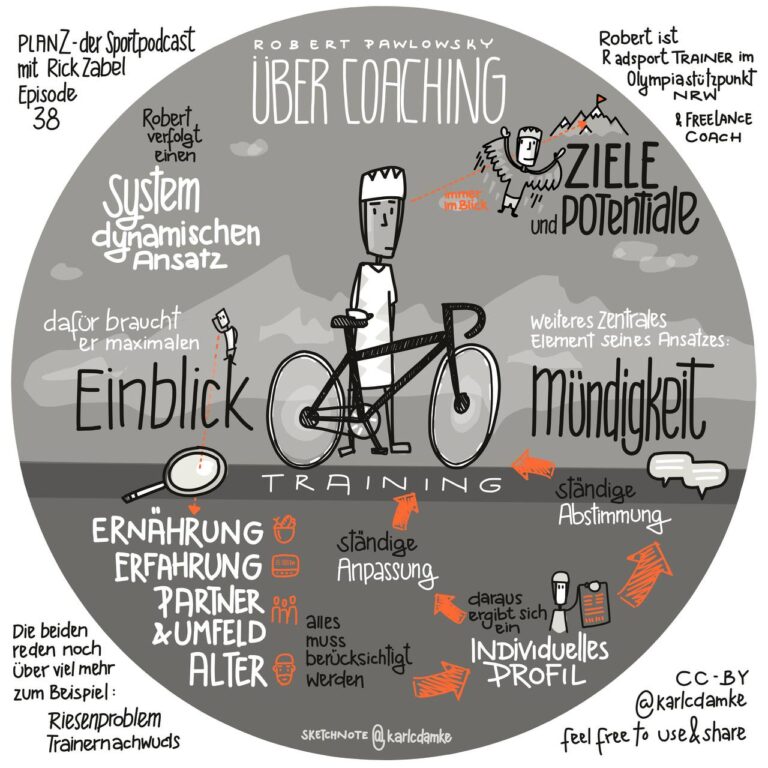 PLANZ - der Sportpodcast
mit Rick Zabel
Episode
38
ROBERT PAWLOWSKY
ÜBER COACHING
Robert ist
Radsport TRAINER im
Olympiastützpunkt
NRW
& FREELANCE
COACH
Robert
verfolgt
einen
System
dynamischen
Ansatz
immer
im Blick
ZIELE
und POTENTIALE
dafür braucht
er maximalen
Einblick
Weiteres zentrales
Element seines Ansatzes:
mündigkeit
TRAINING
ständige
Abstimmung
ERNÄHRUNG
ERFAHRUNG
PARTNER
& UMFELD
ALTER
ständige
Anpassung
alles
muss
berücksichtigt
werden
daraus
ergibt sich
ein
INDIVIDUELLES
PROFIL
Die beiden
reden noch
über viel mehr
zum Beispiel:
Riesenproblem
Trainernachwuds
SKETCHNOTE @karlcdamke
CC-BY
@karlcdamke
feel free to use & share